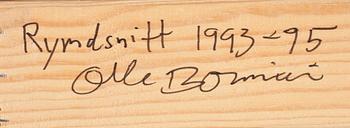 Rymdsnitt 1993-95
Olle Bonniér